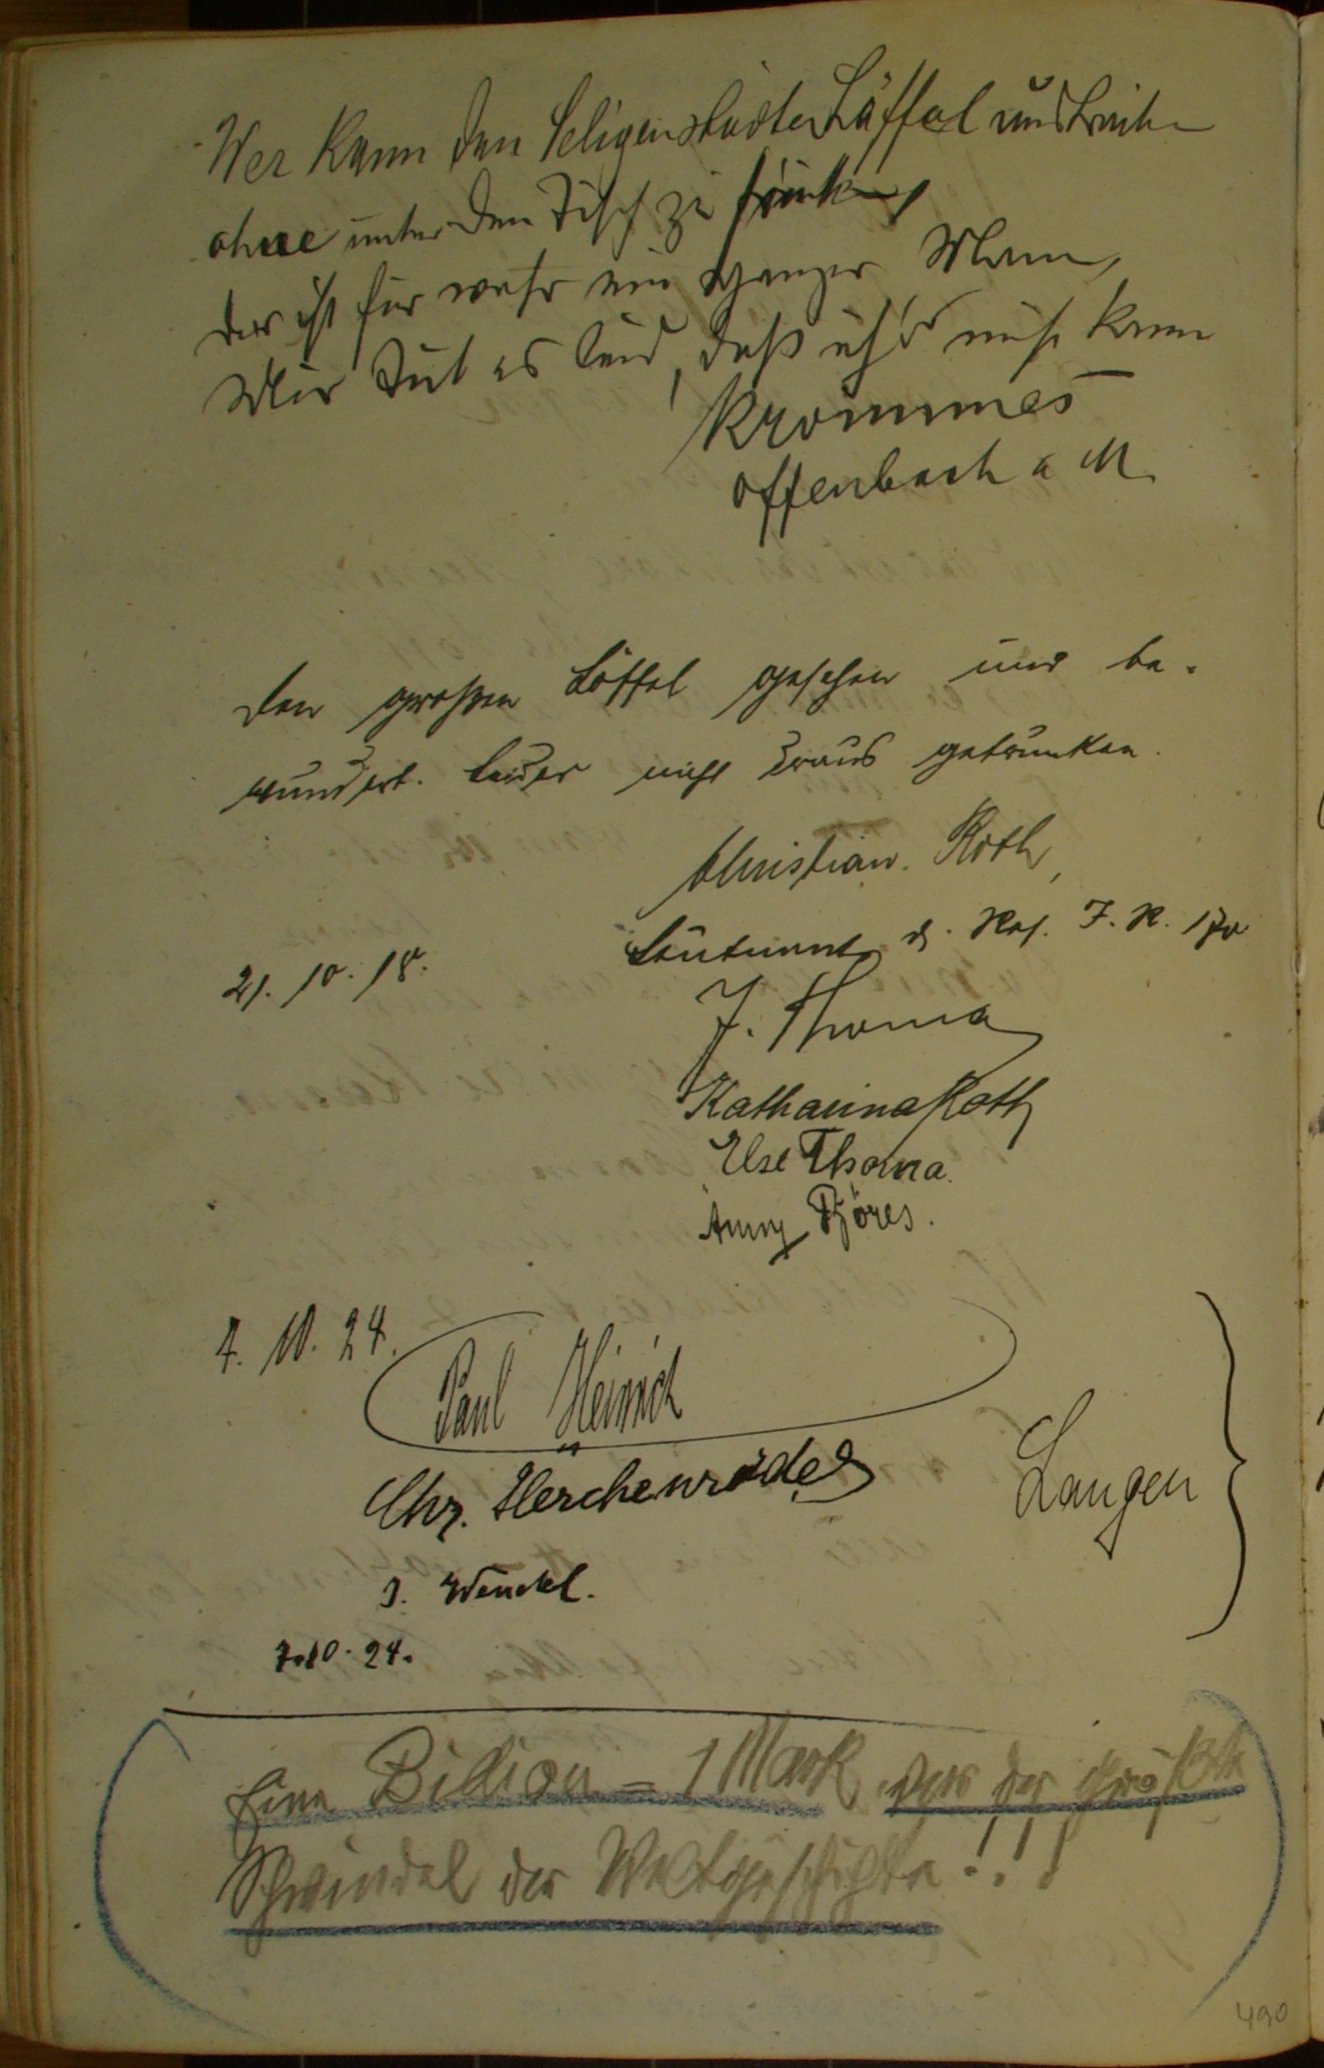 Wer kann den Seligenstädter Löffel austrinken
ohne unter den Tisch zu sinken,
der ist für wahr ein ganzer Mann,
Mir tut es leid, daß ich's nicht kann
Krommes
Offenbach a M.
Den großen Löffel gesehen und be-
wundert. Leider nicht draus getrunken.
Christian Roth,
Leutnant d. Res. I. R.
21. 10. 18.
J. Thoma
Katharina Roth
Else Thoma.
Anny
7. 10. 24.
Paul Heinrich
Chr. Herchenröder
Langen
J. Wenkel.
7.10.24.
Eine Billion = 1 Mark das der größte
Schwindel der Weltgeschichte!!!
490